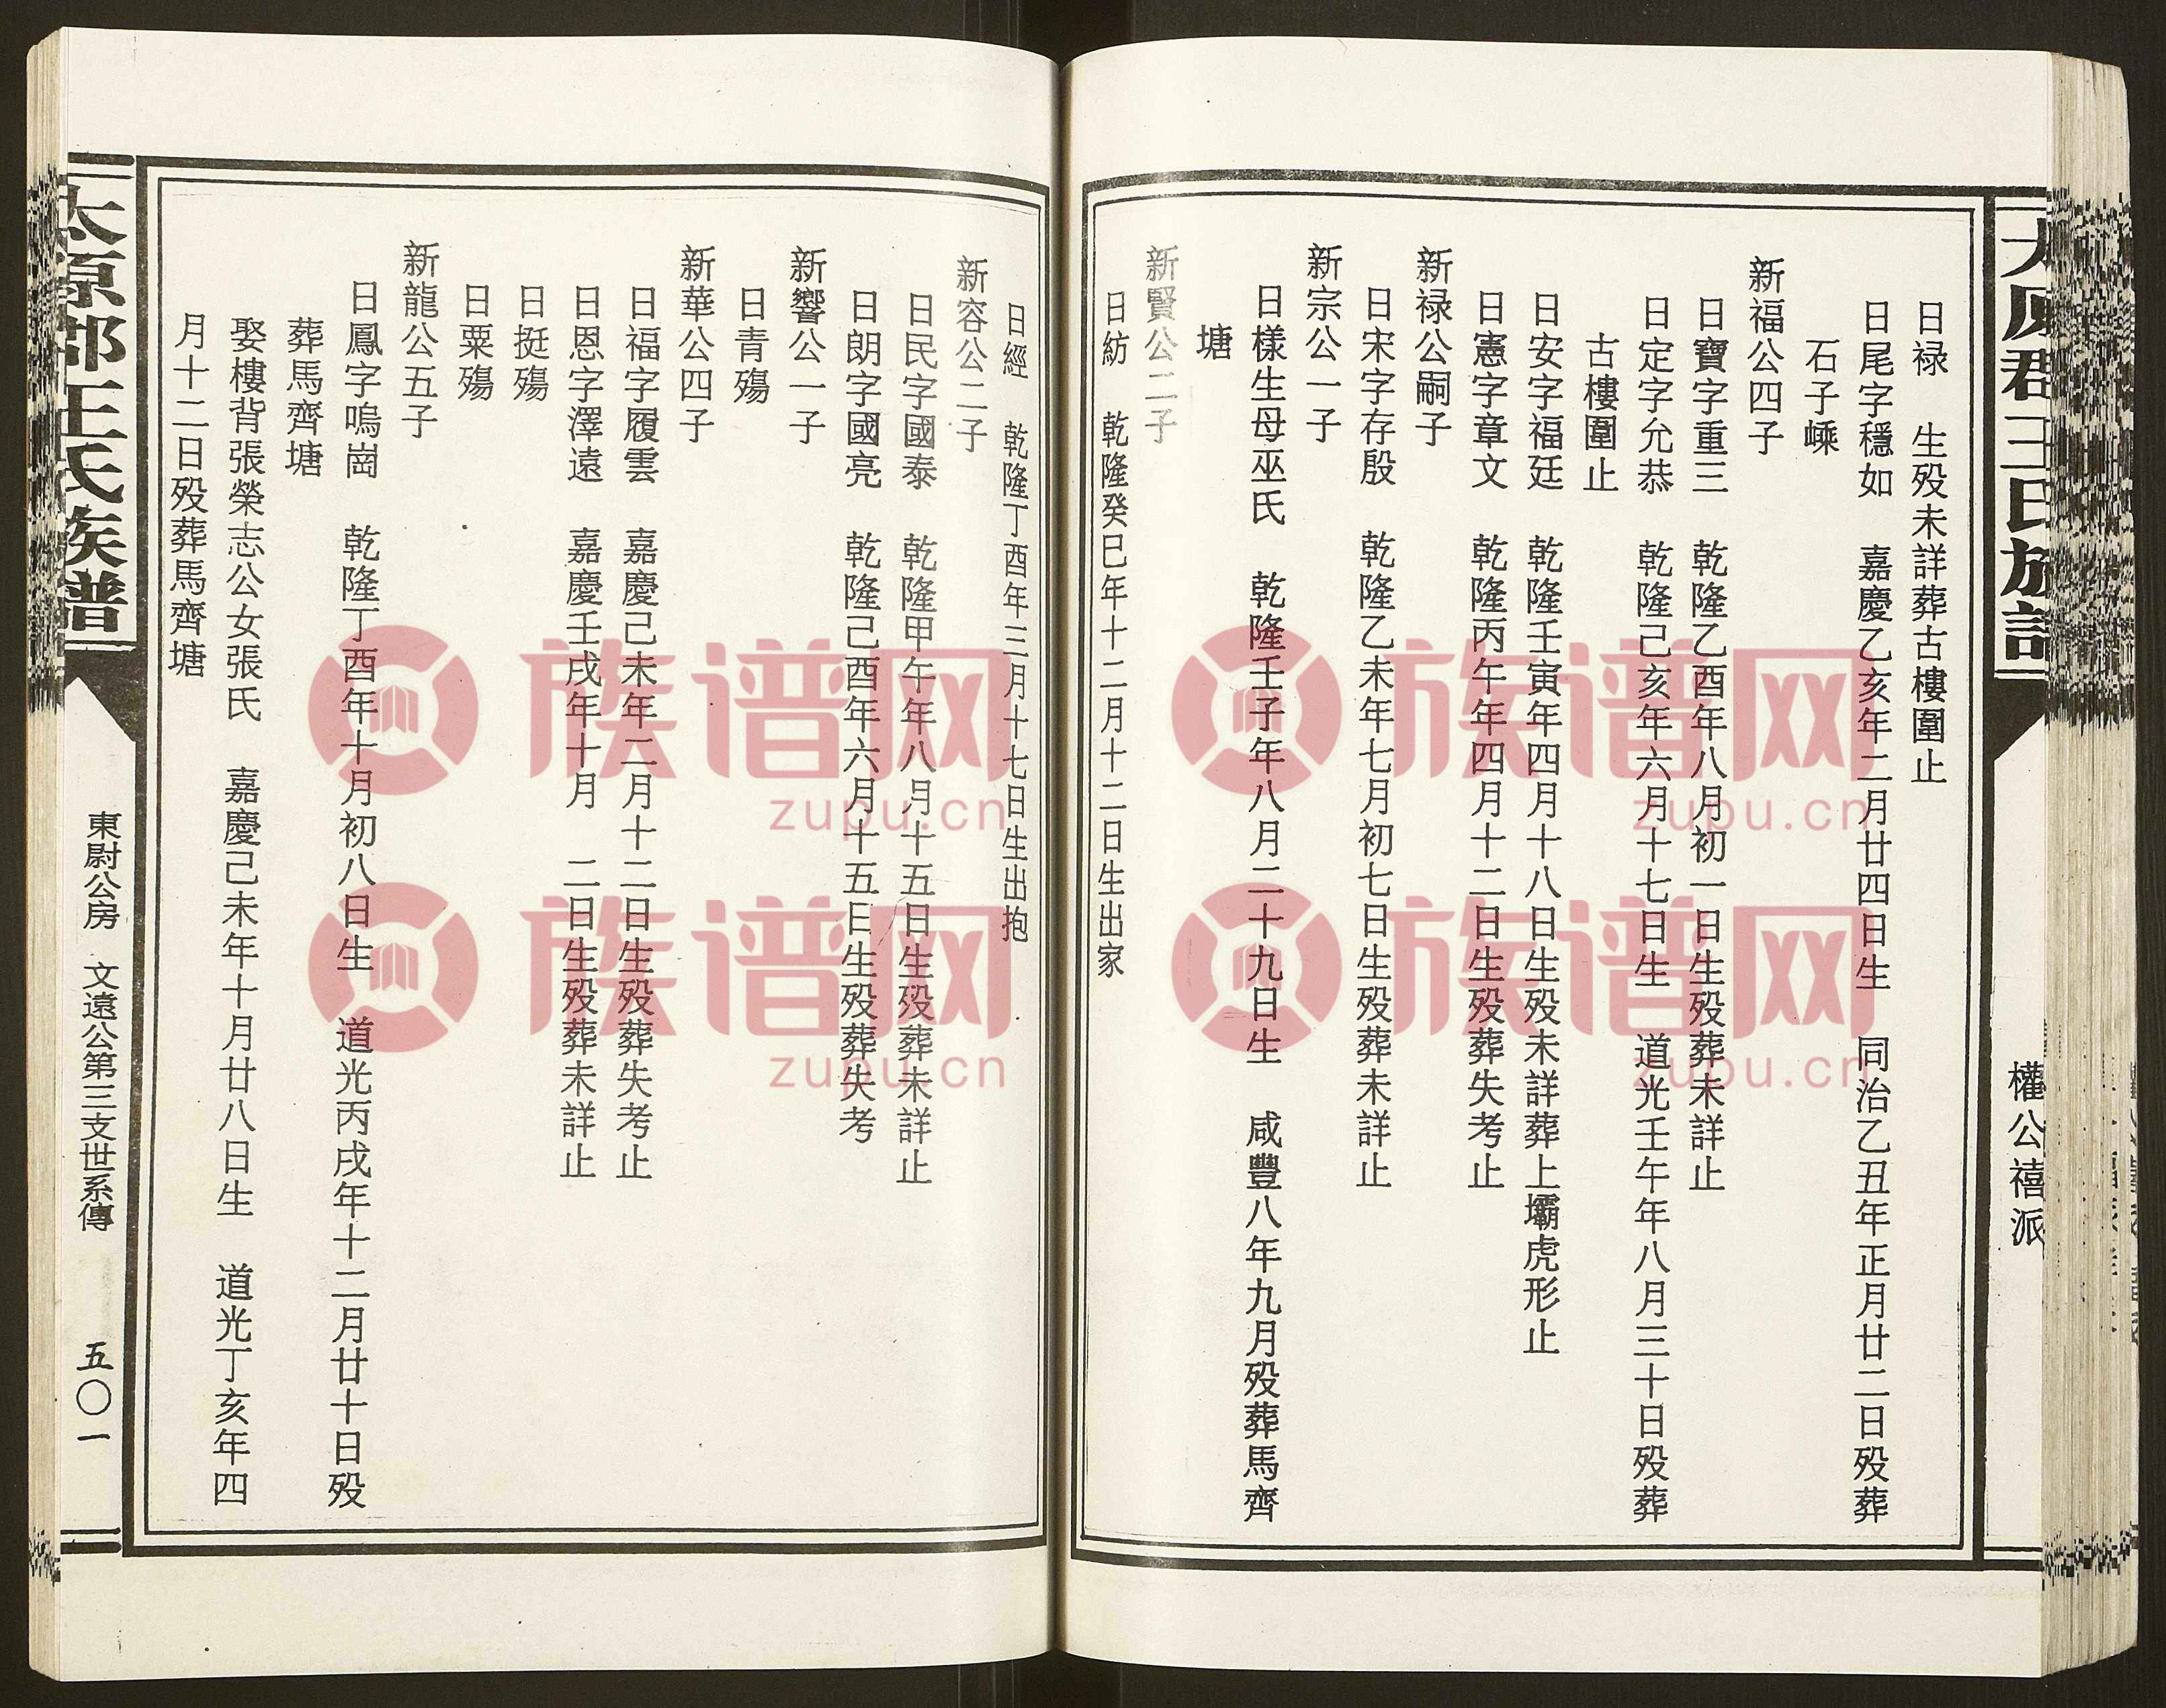 太原郡王氏族譜
權公禧派
日禄　生殁未詳葬古樓圍止
日尾字穩如　嘉慶乙亥年二月廿四日生　同治乙丑年正月廿二日殁葬
石子嵊
新福公四子
日寶字重三　乾隆乙酉年八月初一日生殁葬未詳止
日定字允恭　乾隆己亥年六月十七日生　道光壬午年八月三十日殁葬
古樓圍止
日安字福廷　乾隆壬寅年四月十八日生殁未詳葬上壩虎形止
日憲字章文　乾隆丙午年四月十二日生殁葬失考止
新禄公嗣子
日宋字存殷　乾隆乙未年七月初七日生殁葬未詳止
新宗公一子
日樣生母巫氏　乾隆壬子年八月二十九日生　咸豐八年九月殁葬馬齊
塘
新賢公二子
日紡　乾隆癸巳年十二月十二日生出家
日經　乾隆丁酉年三月十七日生出抱
新容公二子
日民字國泰　乾隆甲午年八月十五日生殁葬未詳止
日朗字國亮　乾隆己酉年六月十五日生殁葬失考
新響公一子
日青殤
新華公四子
日福字履雲　嘉慶己未年二月十二日生殁葬失考止
日恩字澤遠　嘉慶壬戌年十月　二日生殁葬未詳止
日挺殤
日粟殤
新龍公五子
日鳳字鳴崗　乾隆丁酉年十月初八日生　道光丙戌年十二月廿十日殁
葬馬齊塘
娶樓背張榮志公女張氏　嘉慶己未年十月廿八日生　道光丁亥年四
月十二日殁葬馬齊塘
太原郡王氏族譜
東尉公房　文遠公第三支世系傳
五〇一
族谱网
zupu.cn
族谱网
zupu.cn
族谱网
zupu.cn
族谱网
zupu.cn